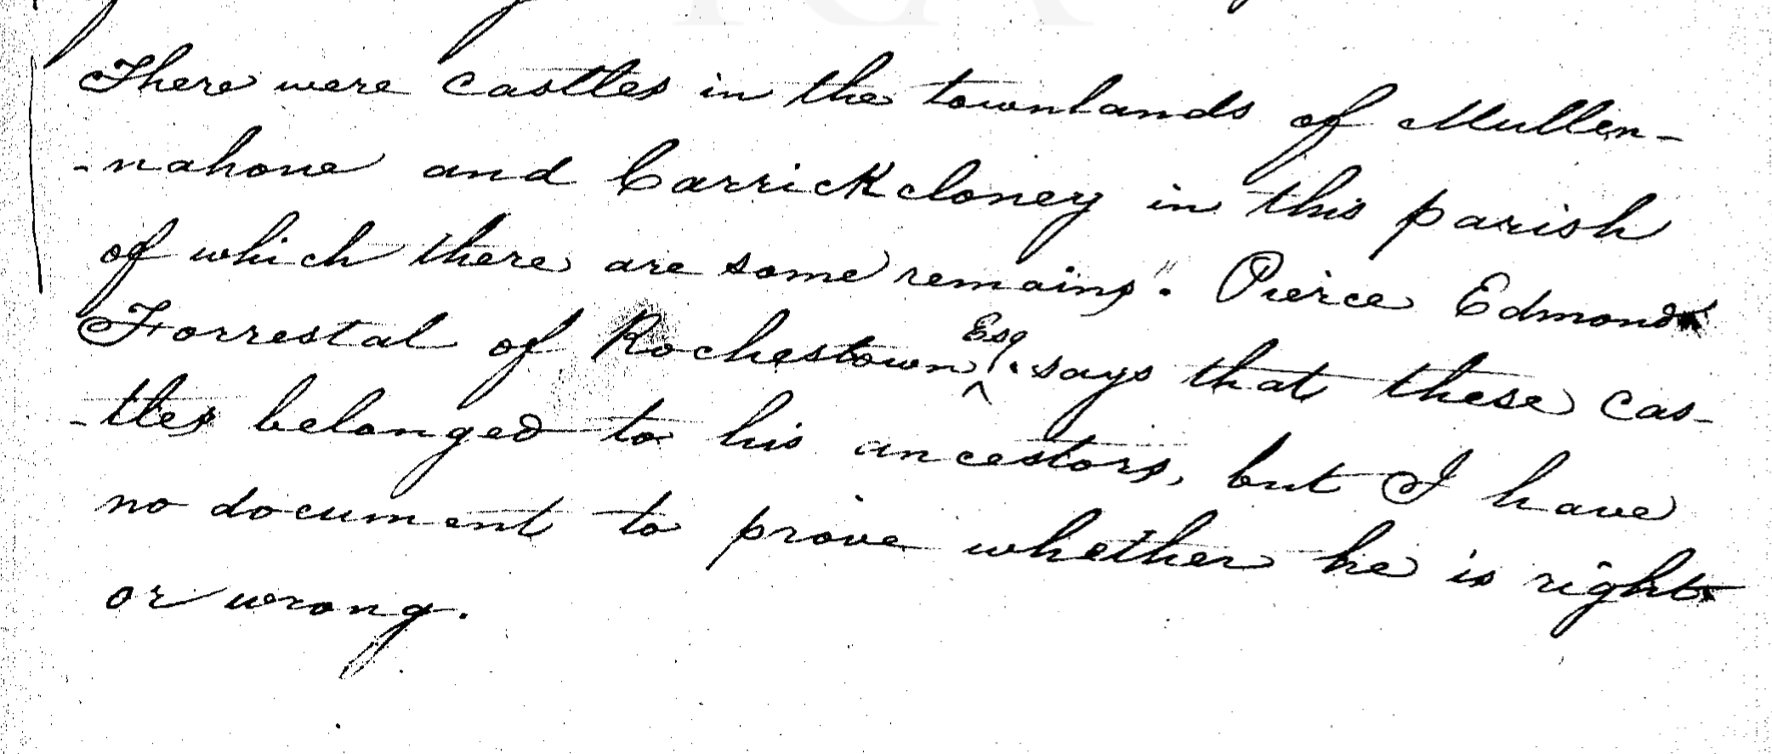 There were castles in the townlands of Mullen-
-nahone and Carrickcloney in this parish
of which there are some remains". Pierce Edmond
Forrestal of Rochestown Esq. says that these cas-
-tles belonged to his ancestors, but I have
no document to prove whether he is right
or wrong.